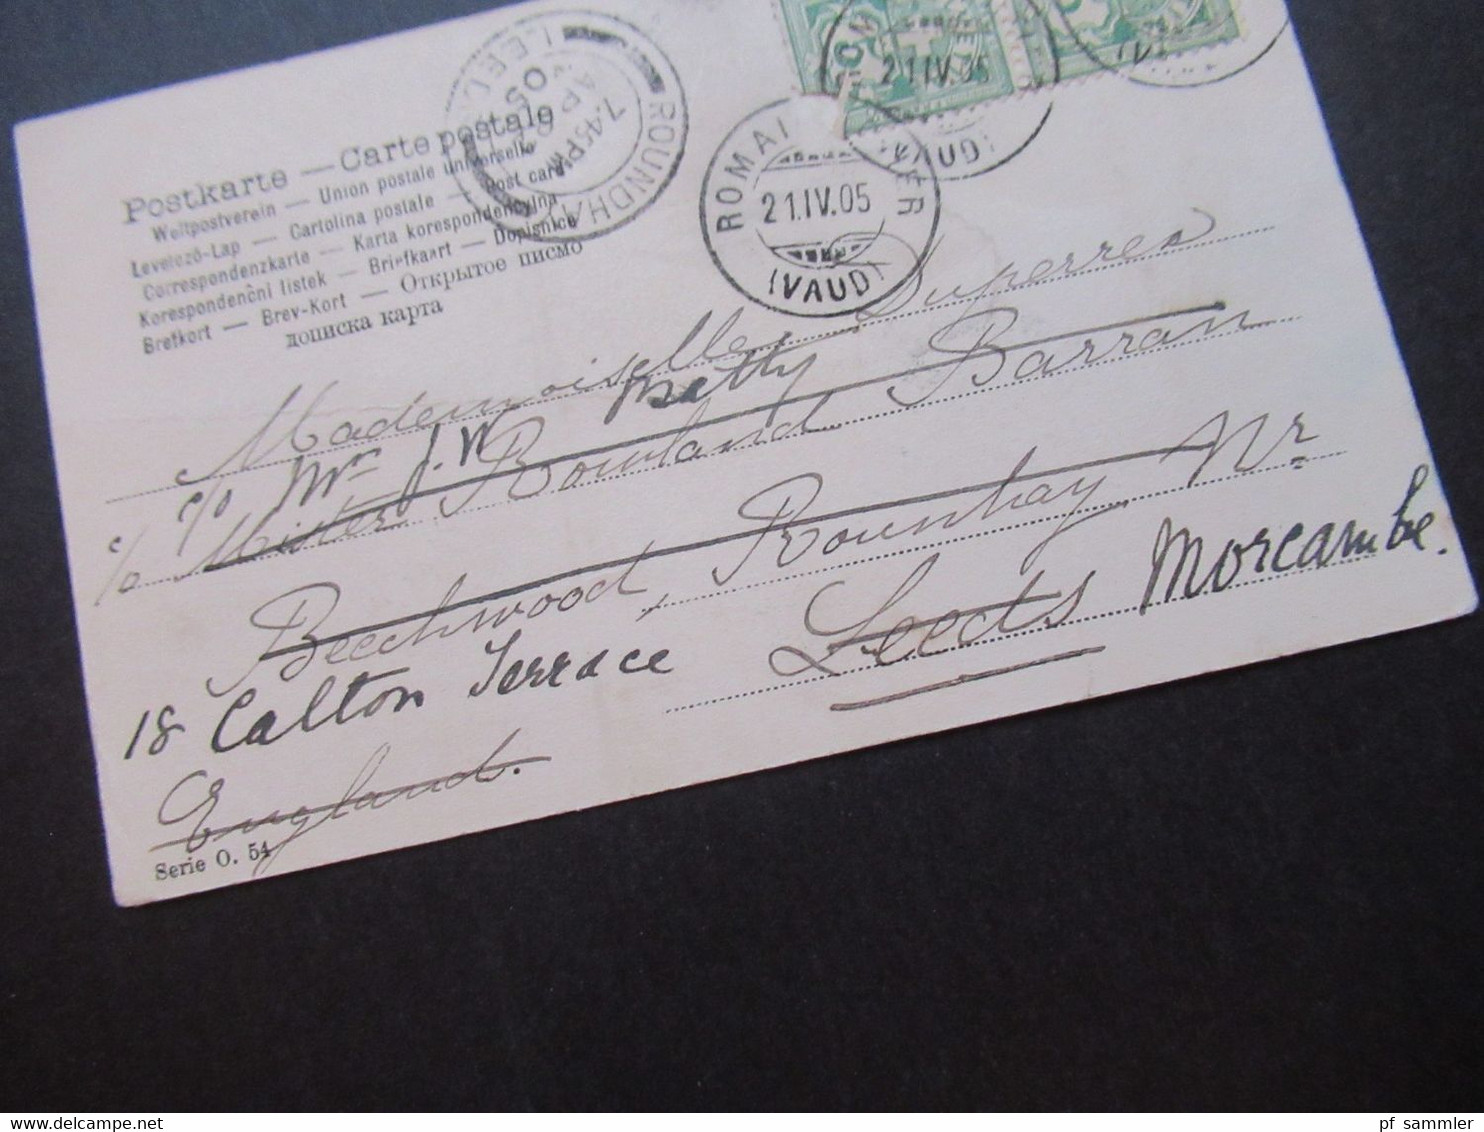 Postkarte — Carte postale
Weltpostverein — Union postale universelle
Levelező-Lap — Cartolina postale — Post card
Correspondenzkarte — Karta korespondencyjna
Korespondenční listek — Briefkaart — Dopisnice
Brefkort — Brev-Kort — Открытое письмо
дописка карта
ROUNDHAY
LEEDS
7.45PM
AP
05
21.IV.05
(VAUD)
ROMAINMOTIER
21.IV.05
(VAUD)
Mademoiselle Superrex
c/o Mr J.W. Batty
c/o Mister Rowland Barran
Beechwood, Rounhay Nr
Leeds Morecambe.
18 Calton Terrace
England.
Serie O. 54
pf_sammler